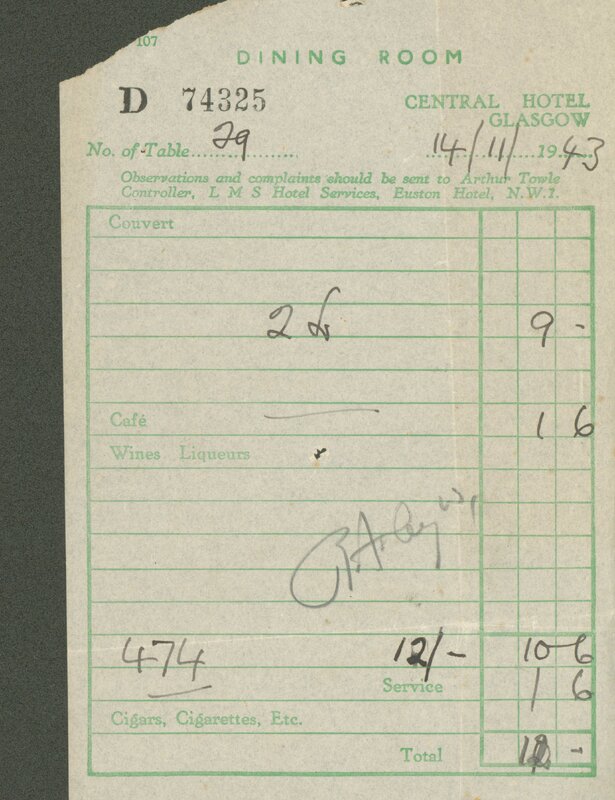 107
DINING ROOM
D 74325
CENTRAL HOTEL
GLASGOW
No. of Table 29
14/11/1943
Observations and complaints should be sent to Arthur Towle
Controller, L M S Hotel Services, Euston Hotel, N.W.1.
Couvert
2 9 -
Café 1 6
Wines Liqueurs
474 12/- 10 6
Service 1 6
Cigars, Cigarettes, Etc.
Total 12 -